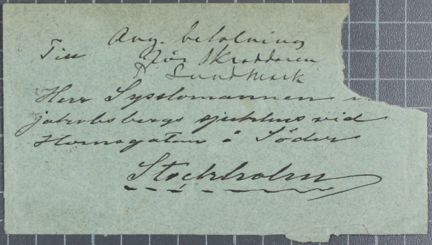 Ang. betalning
Till för Skräddaren
P Sundmark
Herr Sysslomannen
jakobsbergs sjukhus vid
Hornsgatan å Söder
Stockholm